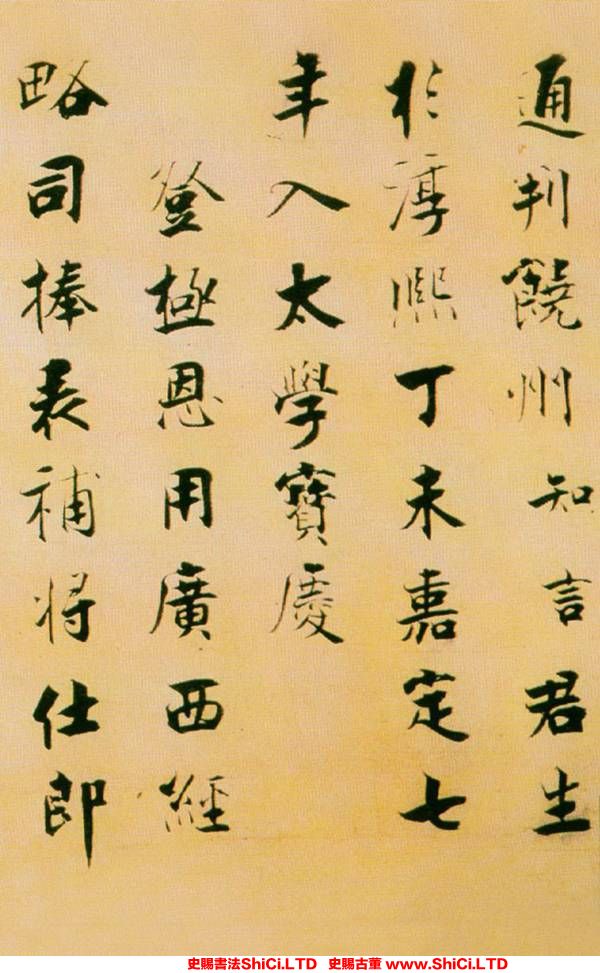 通判饒州知言君生
於淳熙丁未嘉定七
年入太學寶慶
登極恩用廣西經
略司捧表補將仕郎
史賜書法ShiCi.LTD 史賜古董 www.ShiCi.LTD